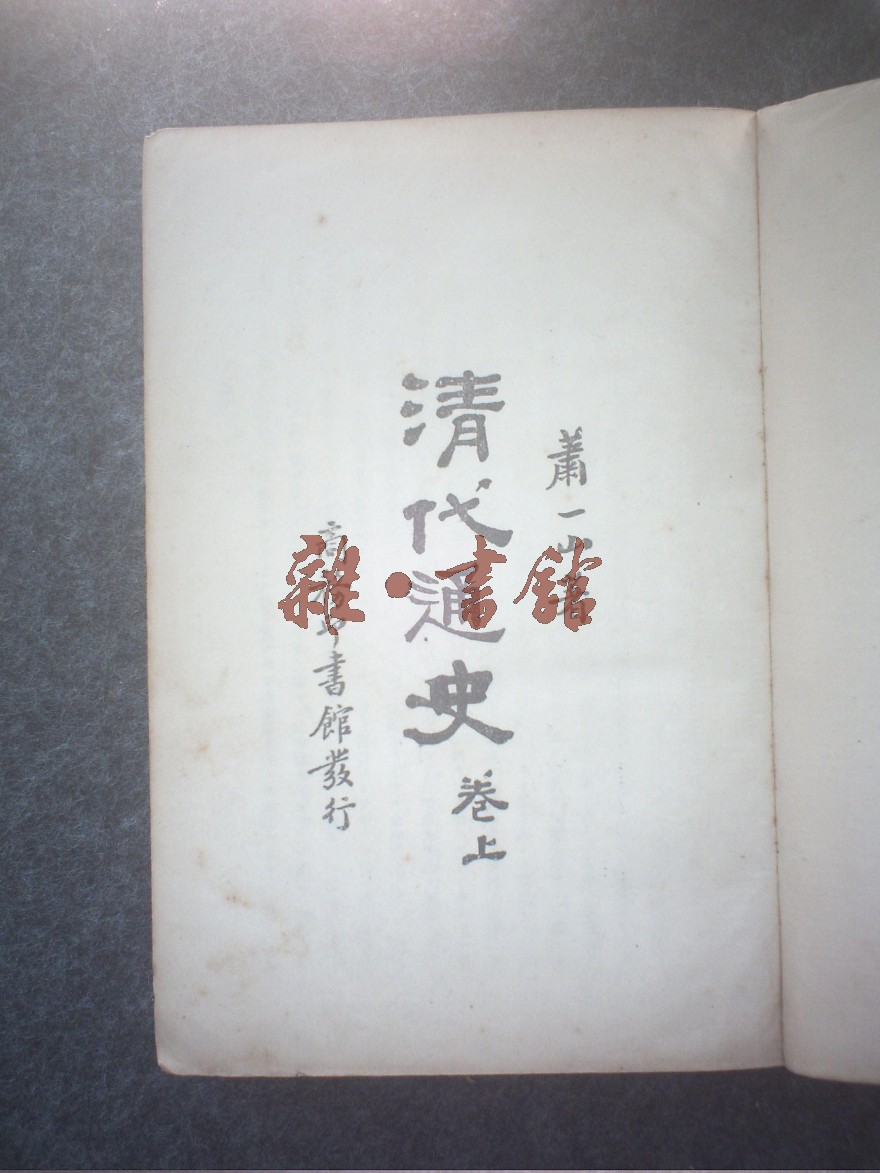 蕭一山著
清代通史
卷上
商務印書館發行
雜·書館